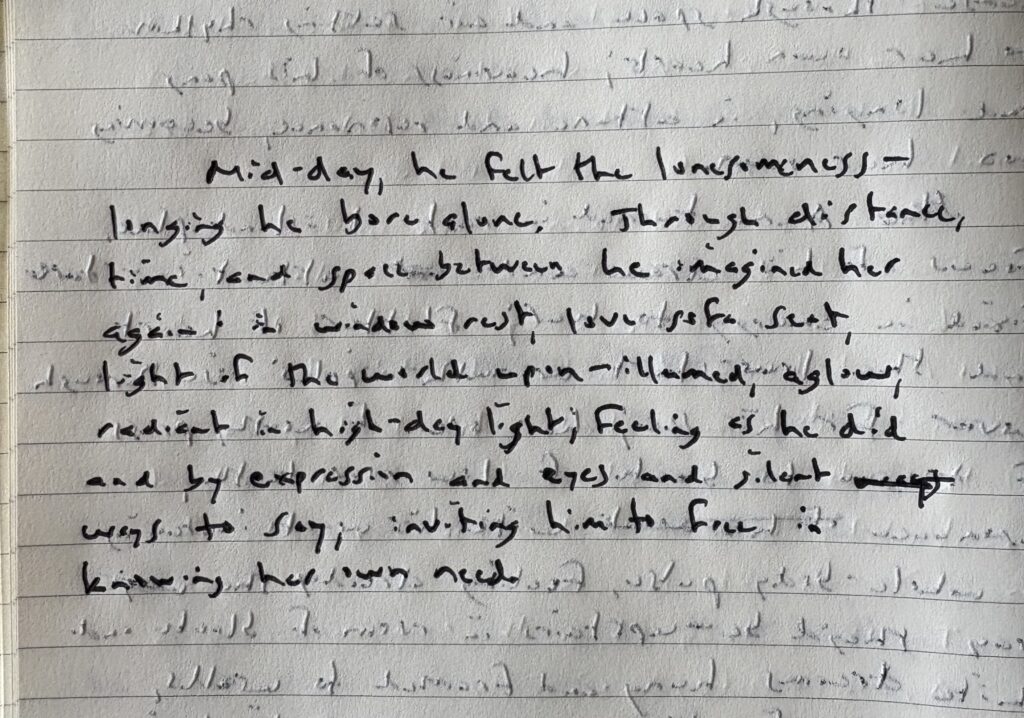 Mid-day, he felt the lonesomeness-
longing he bore alone. Through distance,
time, and space between he imagined her
again in window rest, love sofa seat,
light of the world upon-illumed, aglow,
radiant in high-day light; feeling as he did
and by expression and eyes and silent
ways to say; inviting him to free in
knowing her own need.